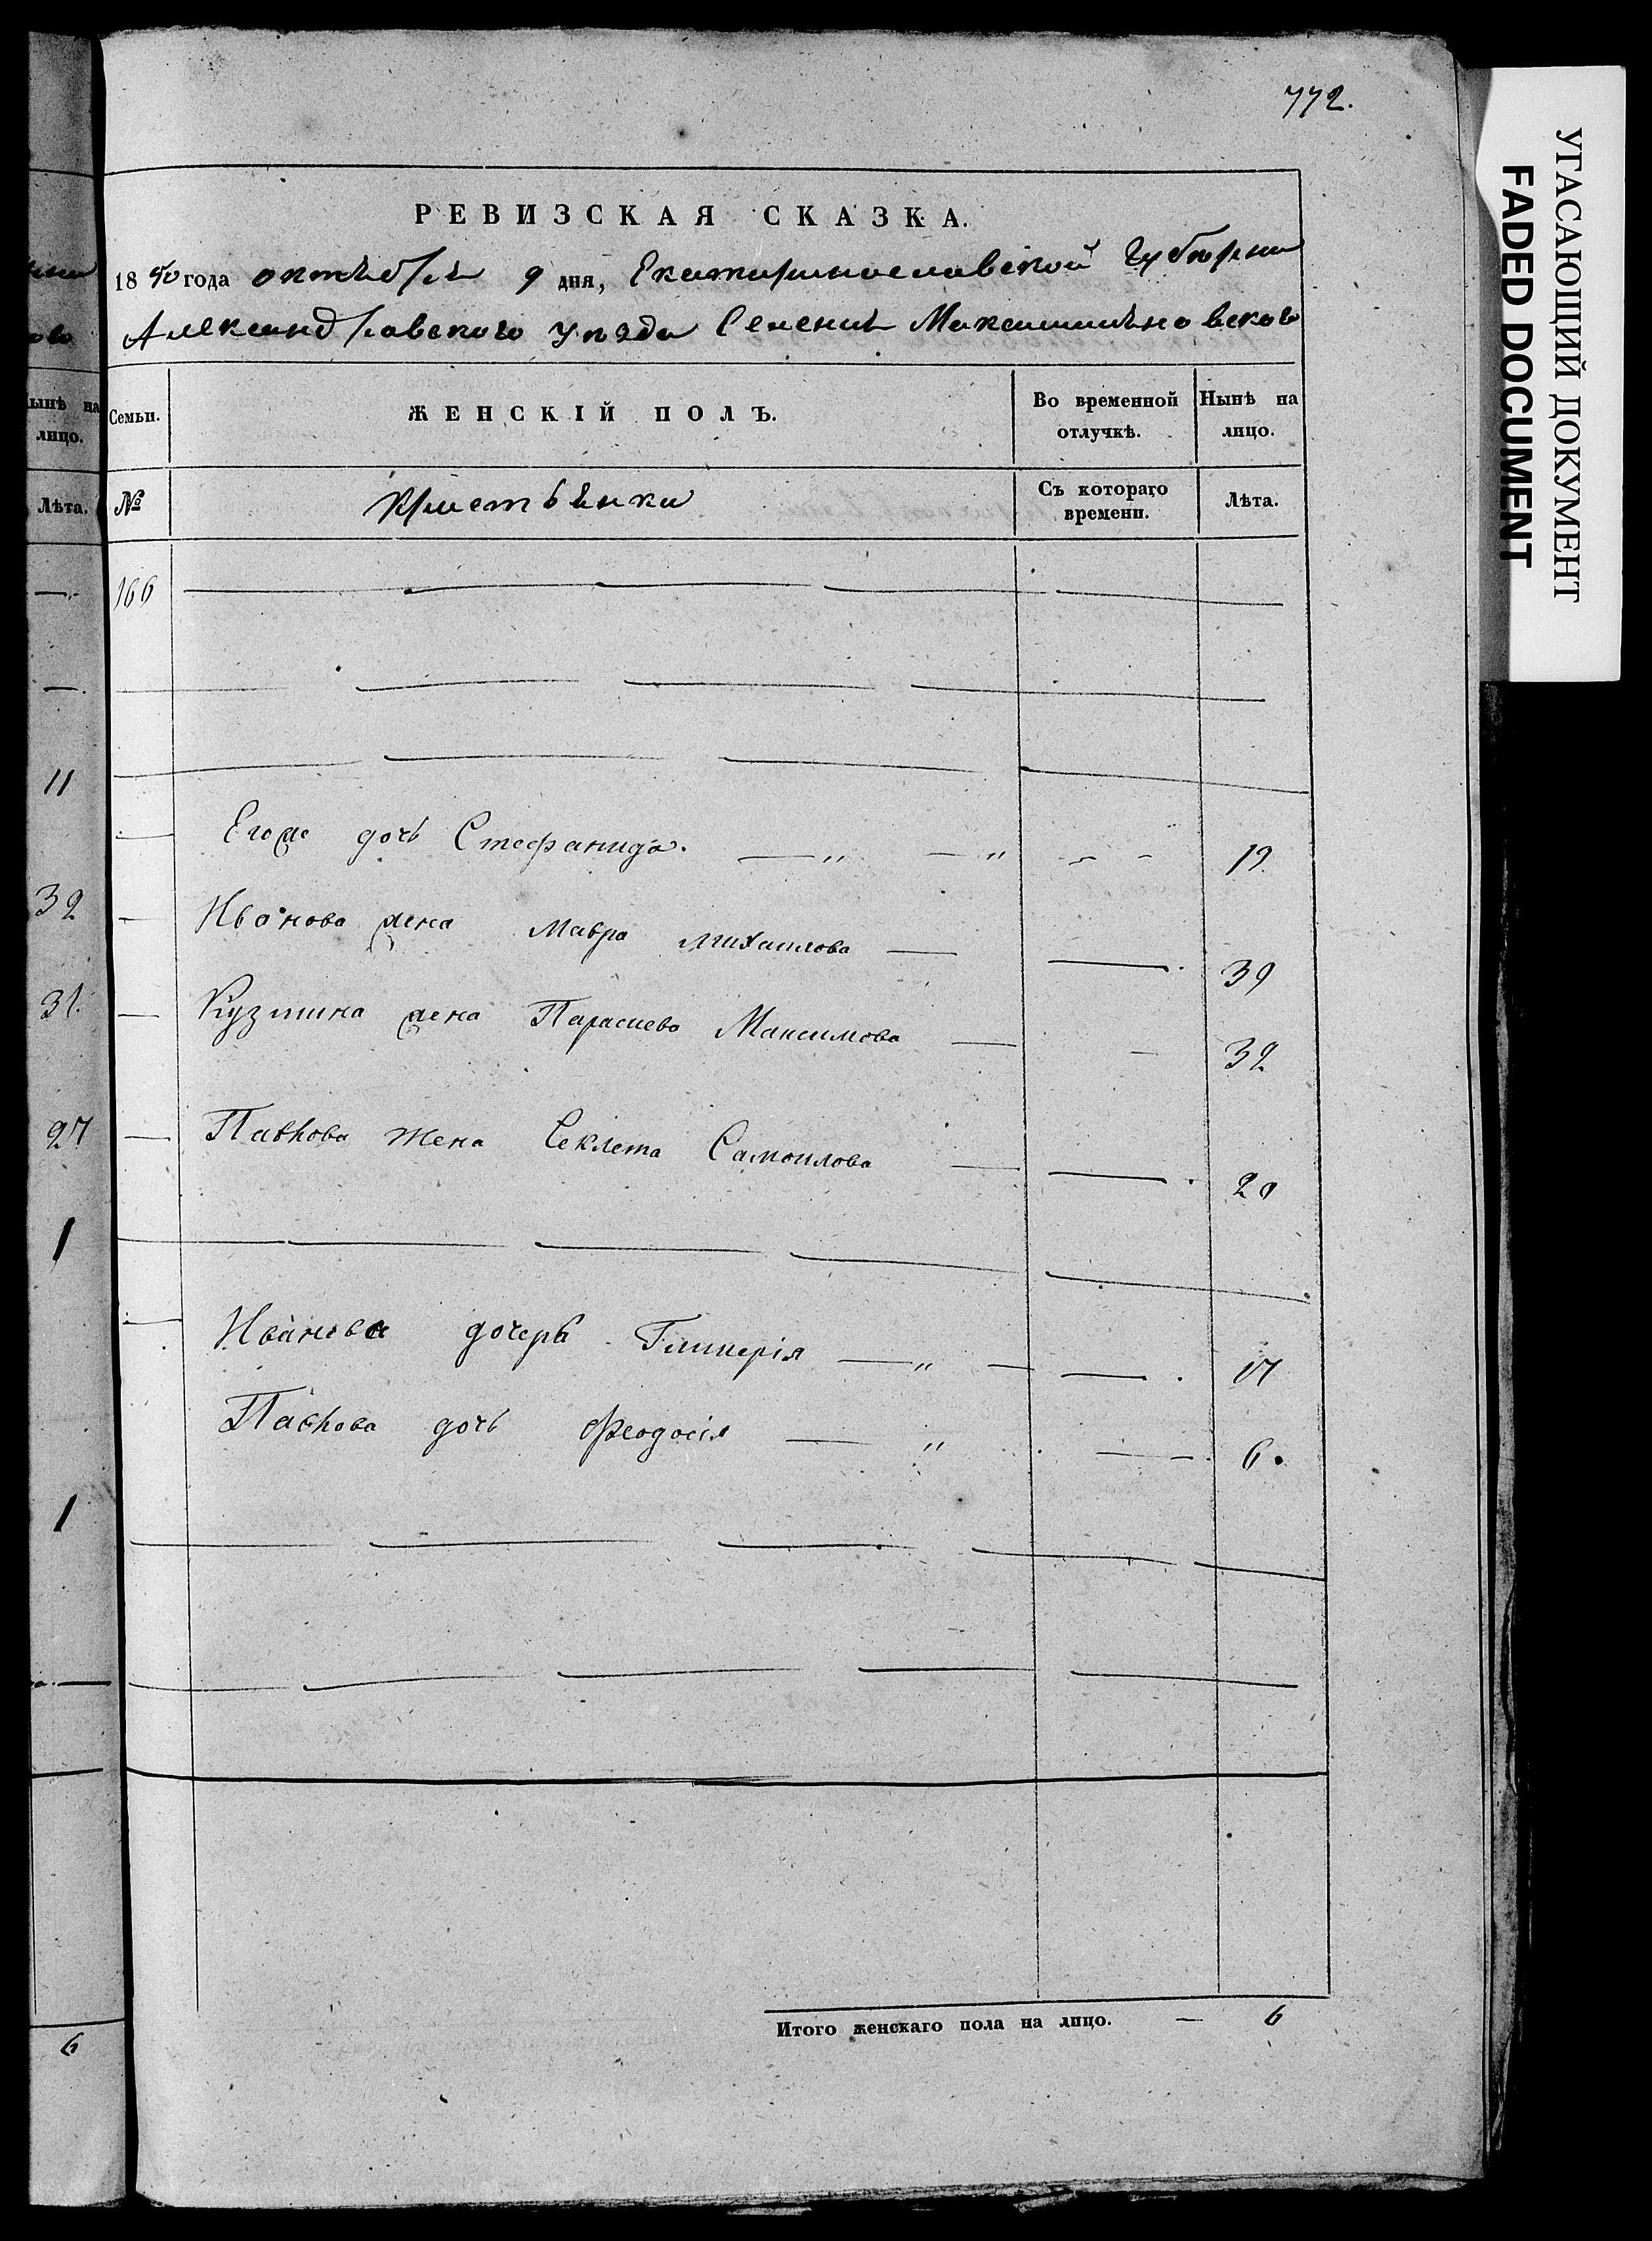 772.
РЕВИЗСКАЯ СКАЗКА.
1850 года октября 9 дня, Екатеринославской Губернии
Александровского уезда Селения Максимильяновского
Семьи. ЖЕНСКІЙ ПОЛЪ. Во временной отлучкѣ. Нынѣ на лицо.
№ Крестьянки Съ котораго времени. Лѣта.
166
Егоже дочь Стефанида. 19.
Иванова жена Мавра Михаилова 39
Кузмина жена Параскева Максимова 32
Павлова жена Секлета Самоилова 20
Иванова дочерь Гликерія 17
Павлова дочь Феодосія 6.
Итого женскаго пола на лицо. — 6
ынѣ на
лицо.
Лѣта.
11
32
31.
27
1
1
6
УГАСАЮЩИЙ ДОКУМЕНТ
FADED DOCUMENT